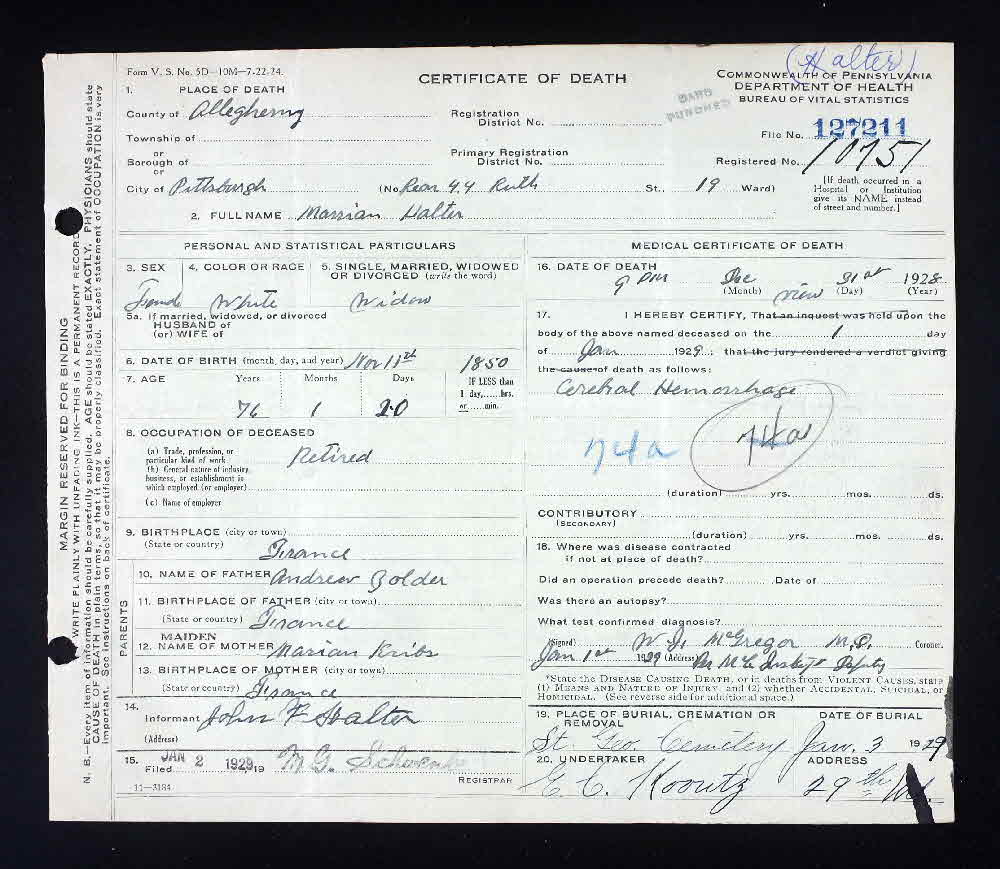 (Halter)
Form V. S. No. 5D—10M—7-22-24.
CERTIFICATE OF DEATH
COMMONWEALTH OF PENNSYLVANIA
DEPARTMENT OF HEALTH
BUREAU OF VITAL STATISTICS
CARD PUNCHED
1. PLACE OF DEATH
County of Allegheny
Registration District No.
File No. 127211
Township of
or
Borough of
or
Primary Registration District No.
Registered No. 10751
City of Pittsburgh (No. Rear 44 Ruth St., 19 Ward)
[If death occurred in a Hospital or Institution give its NAME instead of street and number.]
2. FULL NAME Marrian Halter
PERSONAL AND STATISTICAL PARTICULARS
3. SEX
4. COLOR OR RACE
5. SINGLE, MARRIED, WIDOWED OR DIVORCED (write the word)
White
Widow
5a. If married, widowed, or divorced
HUSBAND of
(or) WIFE of
6. DATE OF BIRTH (month, day, and year) Nov 11th 1850
7. AGE Years Months Days IF LESS than
1 day,......hrs.
or......min.
76 1 20
8. OCCUPATION OF DECEASED
(a) Trade, profession, or particular kind of work Retired
(b) General nature of industry, business, or establishment in which employed (or employer)
(c) Name of employer
9. BIRTHPLACE (city or town)
(State or country) France
PARENTS
10. NAME OF FATHER Andrew Bolder
11. BIRTHPLACE OF FATHER (city or town)
(State or country) France
12. MAIDEN NAME OF MOTHER Marian Kribs
13. BIRTHPLACE OF MOTHER (city or town)
(State or country) France
14.
Informant John F Halter
(Address)
15.
Filed JAN 2 1929 19 M. G.
REGISTRAR
11—3184
MEDICAL CERTIFICATE OF DEATH
16. DATE OF DEATH
9 PM Dec 31st 1928
(Month) (Day) (Year)
view
17. I HEREBY CERTIFY, That an inquest was held upon the
body of the above named deceased on the 1 day
of Jan 1929; that the jury rendered a verdict giving
the cause of death as follows:
Cerebral Hemorrhage
74a
74a
(duration) yrs. mos. ds.
CONTRIBUTORY
(SECONDARY)
(duration) yrs. mos. ds.
18. Where was disease contracted
if not at place of death?
Did an operation precede death? Date of
Was there an autopsy?
What test confirmed diagnosis?
(Signed) W. J. McGregor M.D. Coroner.
Jan 1st 1929 (Address) Deputy
*State the DISEASE CAUSING DEATH, or in deaths from VIOLENT CAUSES, state
(1) MEANS AND NATURE OF INJURY, and (2) whether ACCIDENTAL, SUICIDAL, or
HOMICIDAL. (See reverse side for additional space.)
19. PLACE OF BURIAL, CREMATION OR REMOVAL
DATE OF BURIAL
St. Geo. Cemetery Jan. 3 1929
20. UNDERTAKER
ADDRESS
E. C. Koontz 29th Wd.
MARGIN RESERVED FOR BINDING
WRITE PLAINLY WITH UNFADING INK—THIS IS A PERMANENT RECORD
N. B.—Every item of information should be carefully supplied. AGE should be stated EXACTLY. PHYSICIANS should state
CAUSE OF DEATH in plain terms, so that it may be properly classified. Exact statement of OCCUPATION is very
important. See instructions on back of certificate.